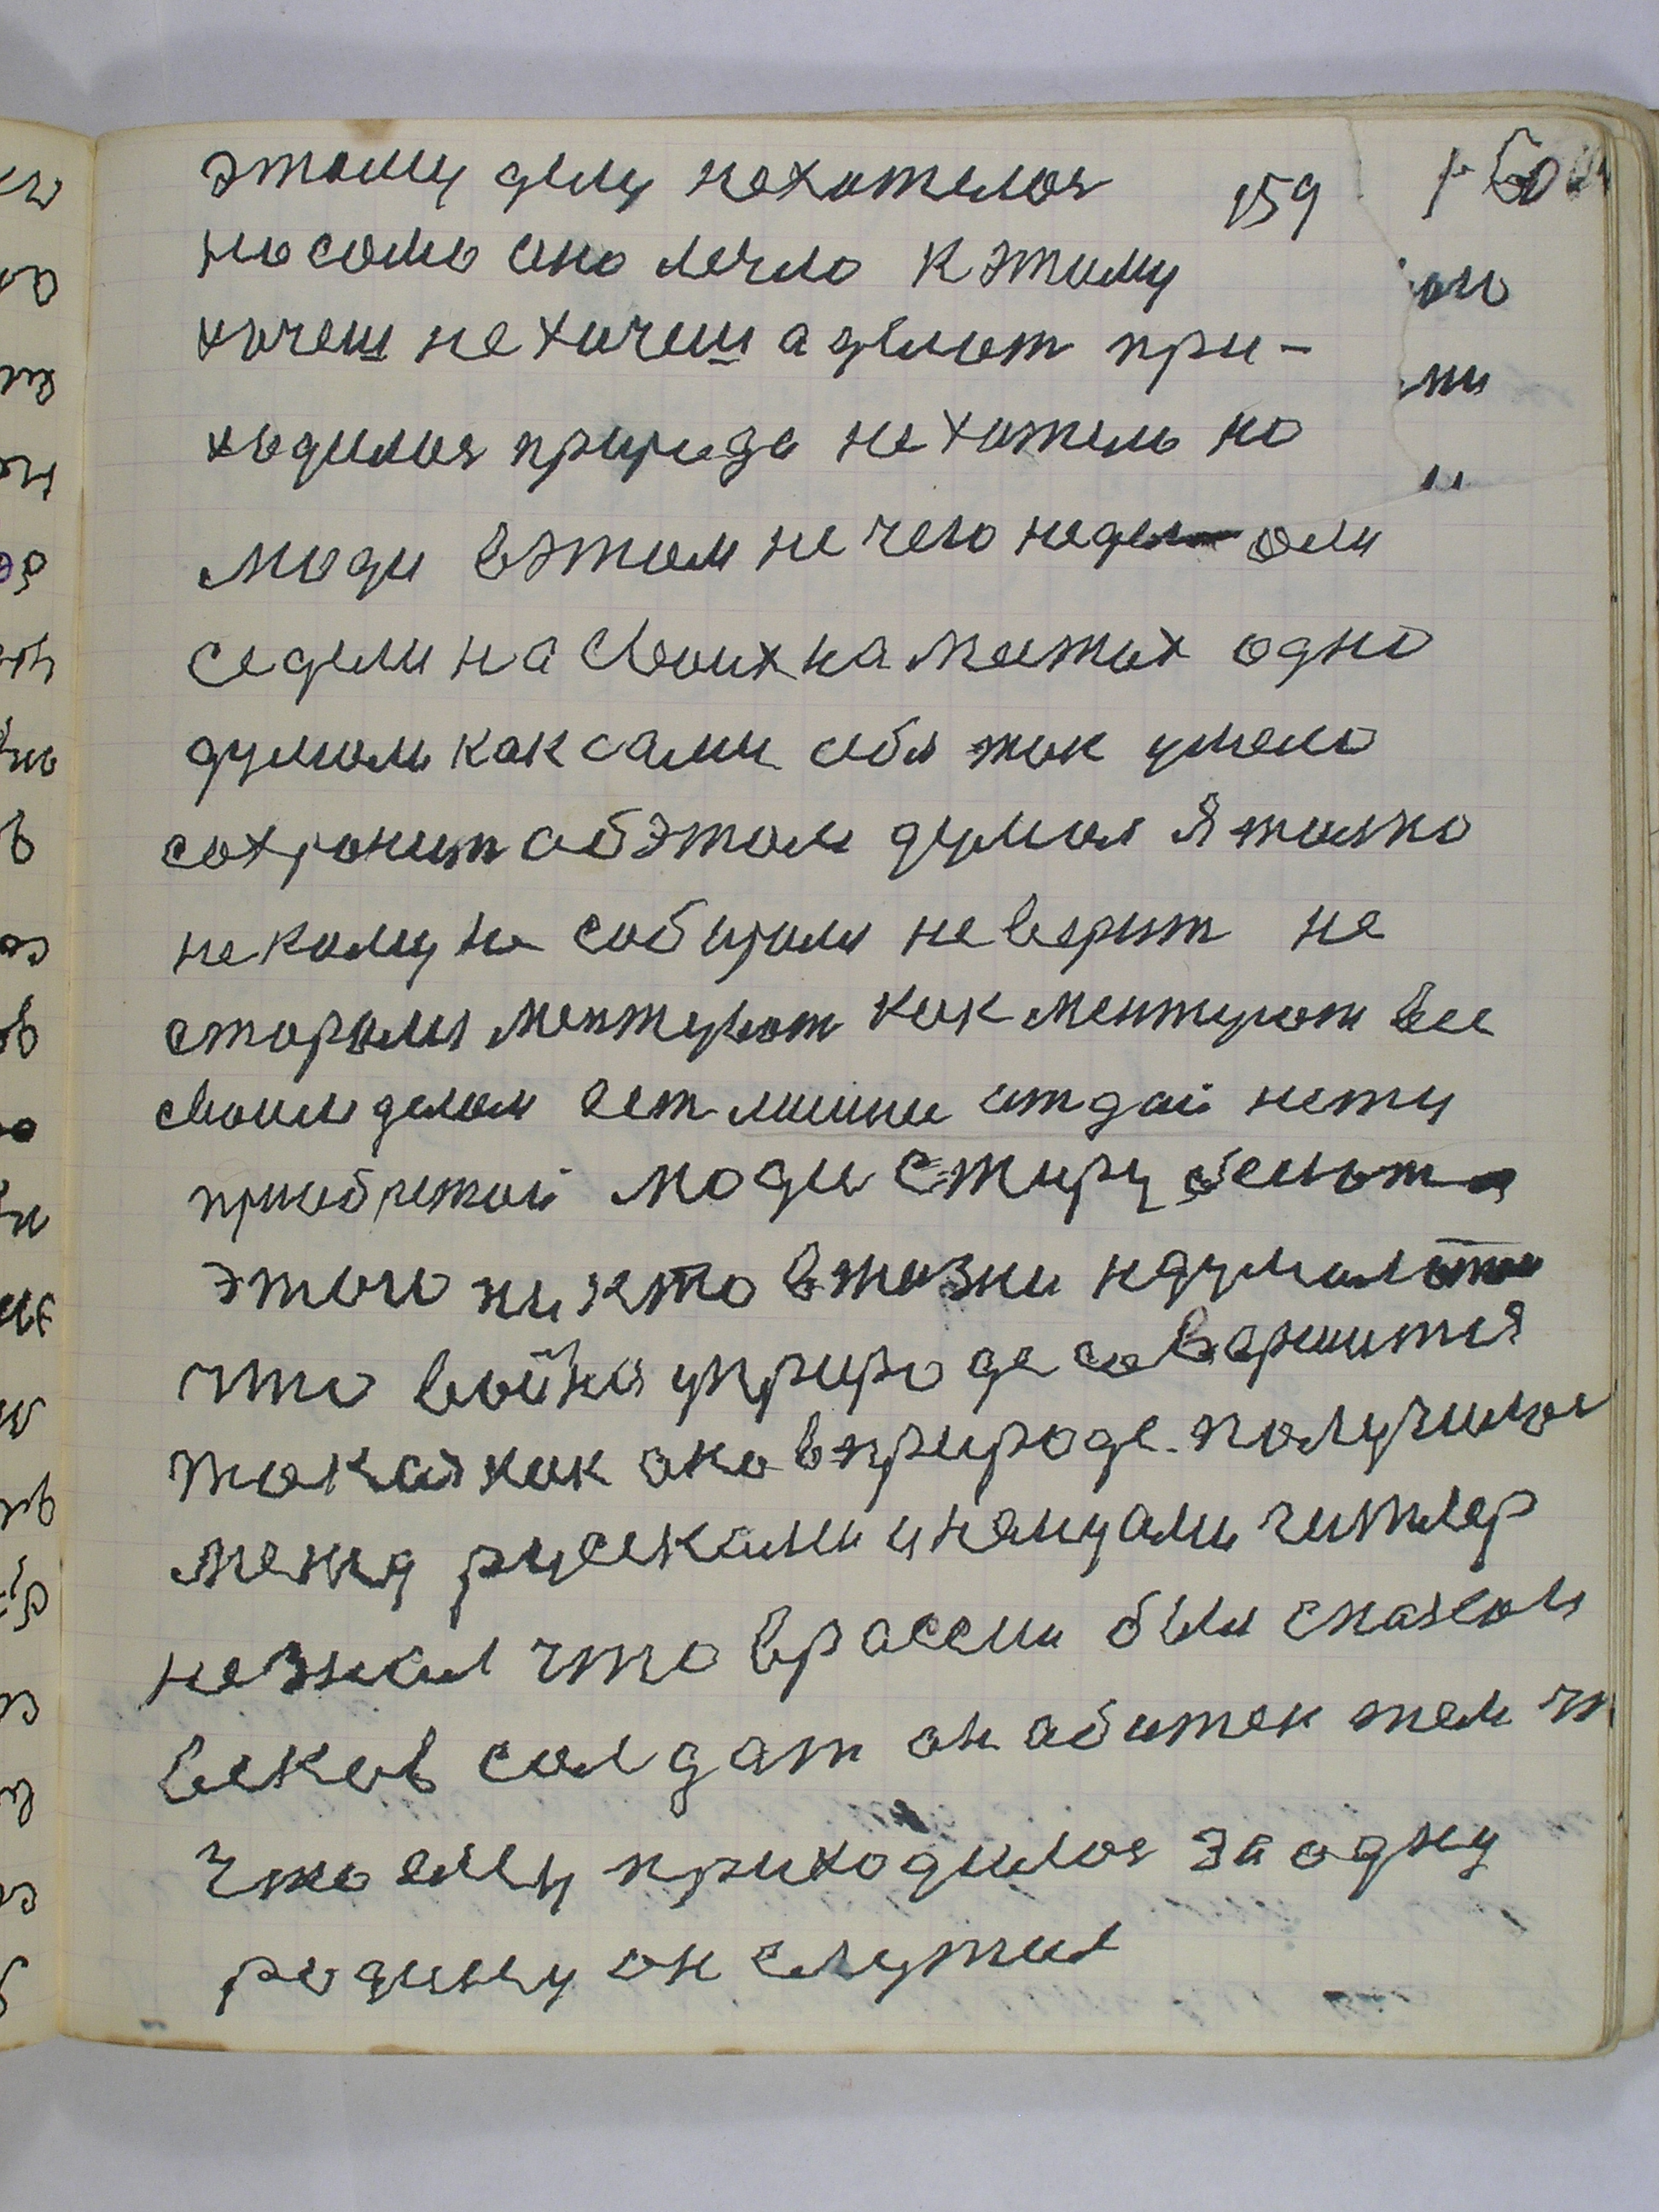 этому делу нехотелоя 159
но само оно легло к этому
хочеш не хочеш а делат при-
ходилоя природа не хотель но
люди вэтом не чего неде оли
седели на своих на местах одно
думали как сами себя так умело
сохронит обэтом думая я толко
не кому не собирали не верит не
сторался
своим делам ест лишне отдай нету
приобретай люди
этого ни кто вжизни недумал
что война уприроде совершится
такая как она вприроде получилоя
межд руссками и немцами гитлер
незнал что врассеи были сказали
веков солдат он
что ему приходилоя за одну
родину он служил